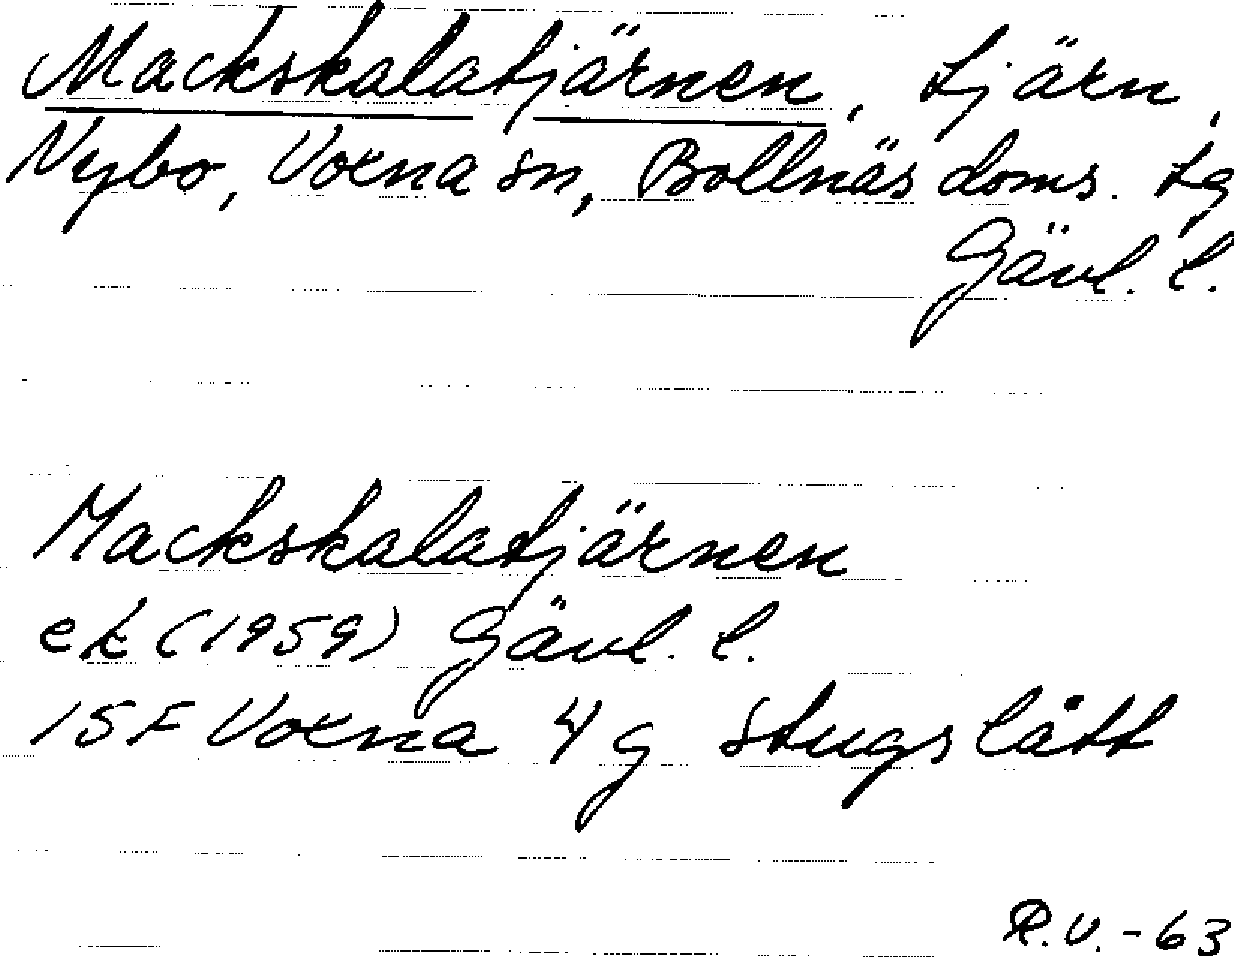 Mackskalatjärnen, tjärn,
Nybo, Voxna sn, Bollnäs doms. tg
Gävl. l.
Mackskalatjärnen
ek (1959) Gävl. l.
15F Voxna 4g Stugslått
R.V. -63